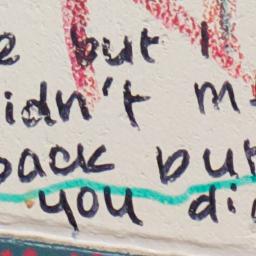 e but I
idn't m
back but
you di